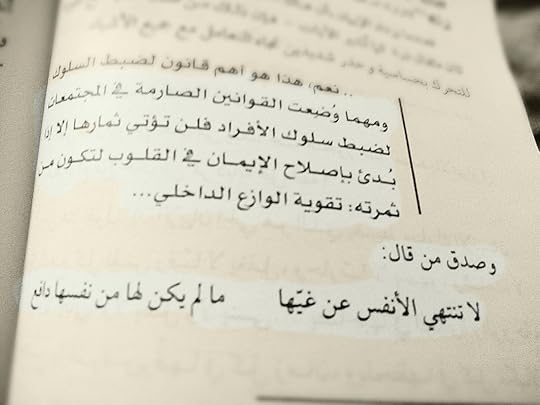 للتحرك بحساسية وحذر شديدين تجاه التعامل مع جميع
.. نعم، هذا هو أهم قانون لضبط السلوك
ومهما وُضِعت القوانين الصارمة في المجتمعات
لضبط سلوك الأفراد فلن تؤتي ثمارها إلا إذا
بُدئ بإصلاح الإيمان في القلوب لتكون من
ثمرته: تقوية الوازع الداخلي...
وصدق من قال:
لا تنتهي الأنفس عن غيّها ما لم يكن لها من نفسها دافع